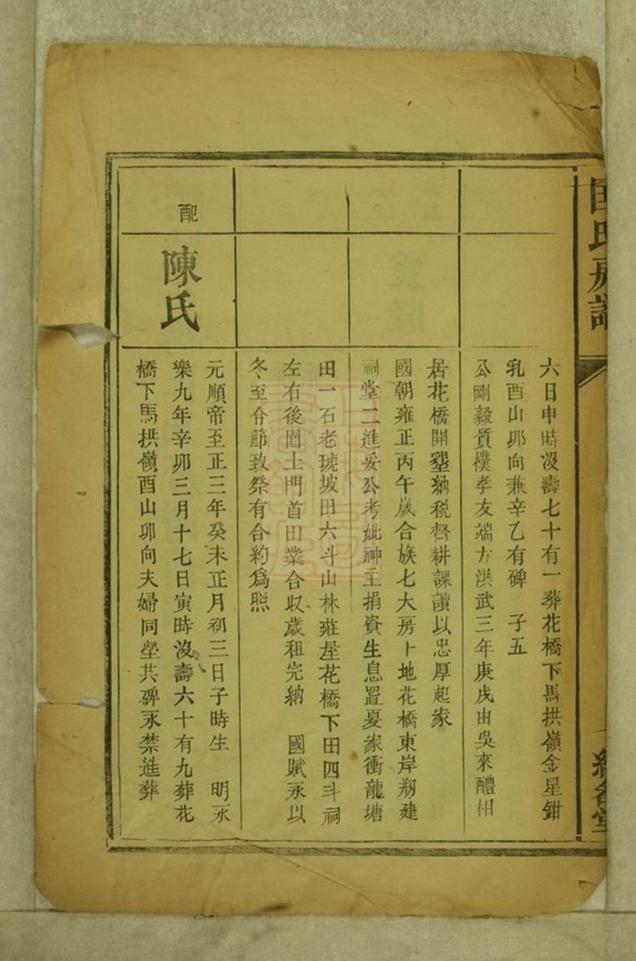 氏房譜
六日申時沒壽七十有一葬花橋下馬拱嶺金星鉗
乳酉山卯向兼辛乙有碑　子五
公剛毅質樸孝友端方洪武三年庚戌由吳來醴相
居花橋開墾納税督耕課讀以忠厚起家
國朝雍正丙午歲合族七大房卜地花橋東岸剏建
祠堂二進妥公考妣神主捐資生息置夏家衝龍塘
田一石老琥坡田六斗山林莊屋花橋下田四斗祠
左右後園土門首田業合収歳租完納　國賦永以
冬至令節致祭有合約爲照
配
陳氏
元順帝至正三年癸未正月初三日子時生　明永
樂九年辛卯三月十七日寅時沒壽六十有九葬花
橋下馬拱嶺酉山卯向夫婦同塋共碑永禁進葬